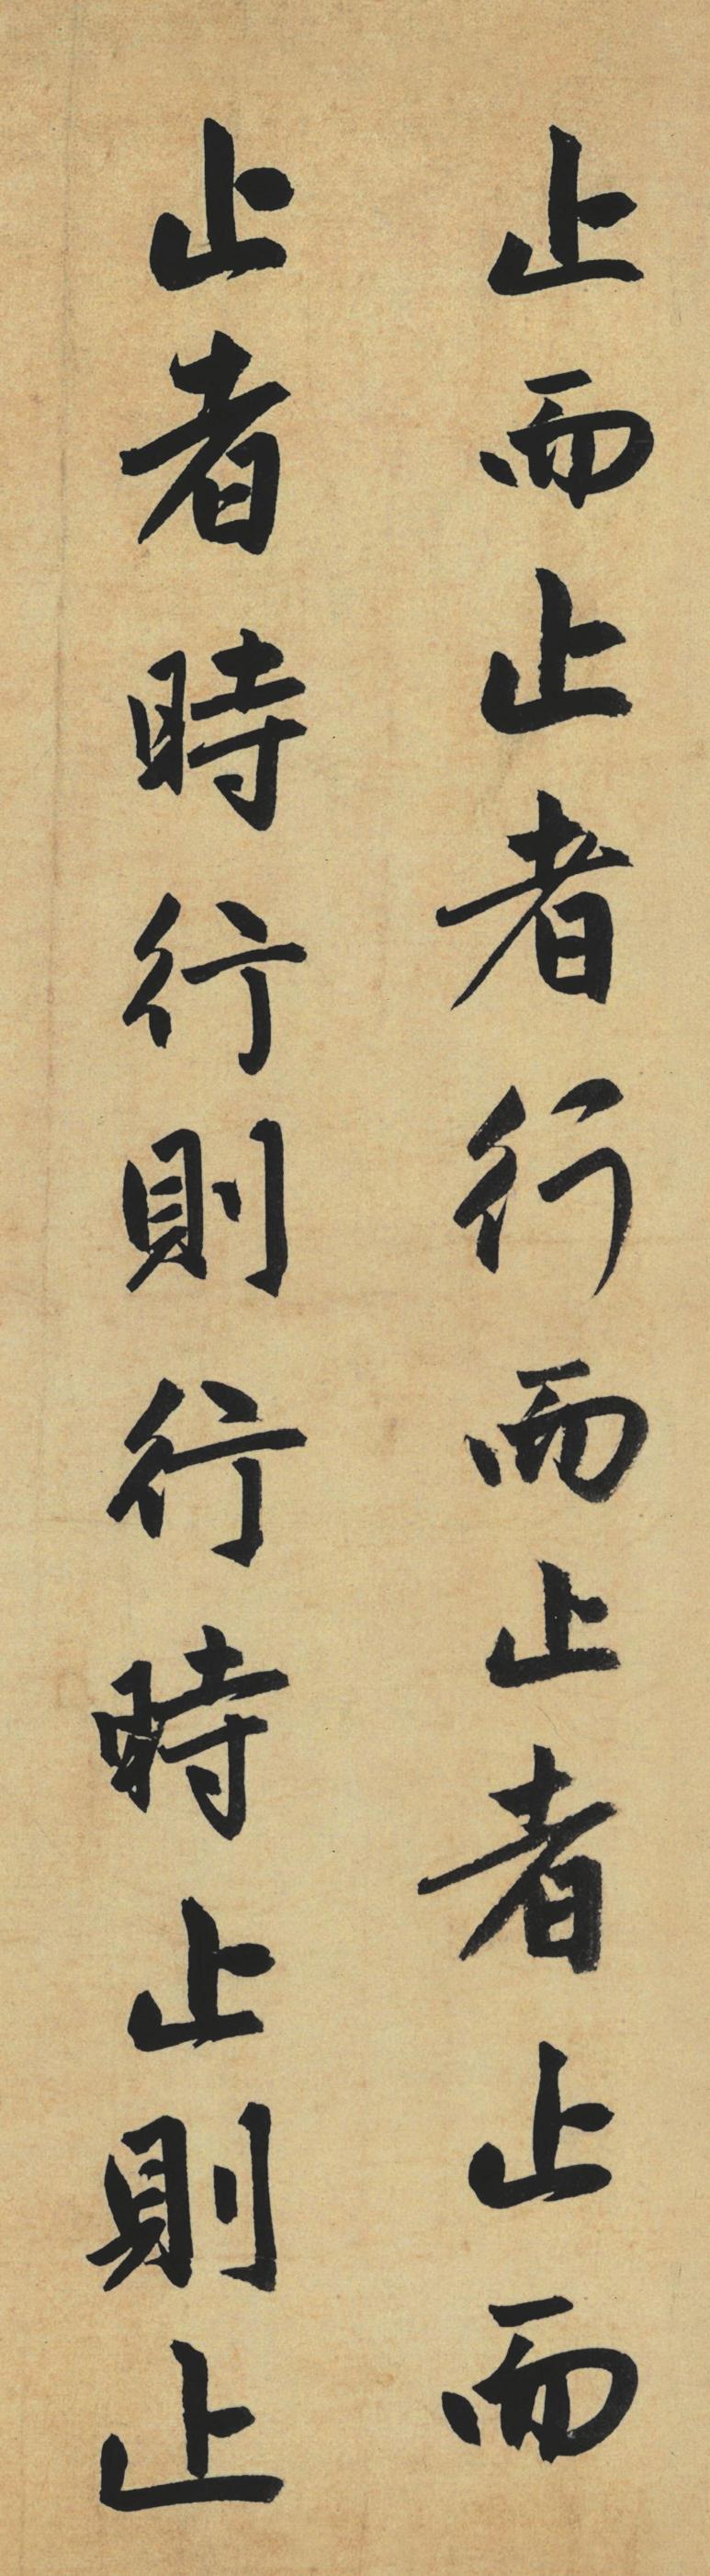 止而止者行而止者止而
止者時行則行時止則止